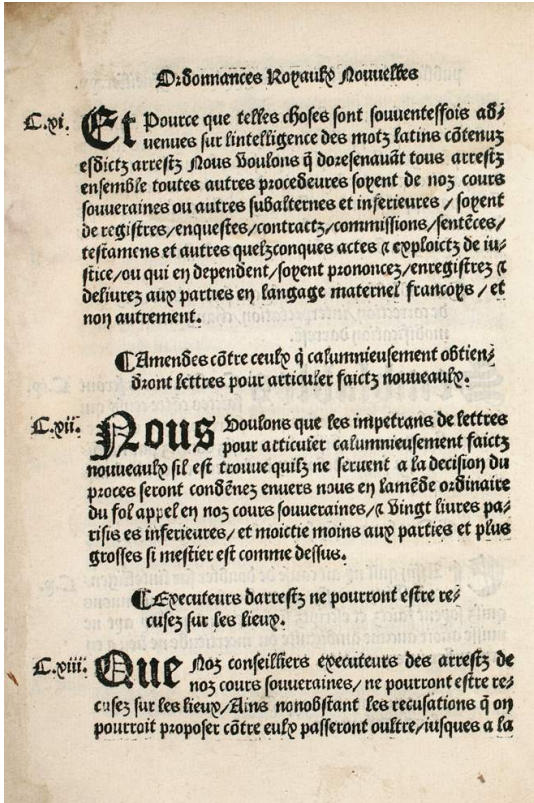 Ordonnances Royaulx Nouvelles
C.xi. Et Pource que telles choses sont souuenteffois ad-
uenues sur lintelligence des motz latins cõtenuz
esdictz arrestz Nous Voulons q̃ doresenauãt tous arrestz
ensemble toutes autres procedeures soyent de noz cours
souueraines ou autres subalternes et inferieures / soyent
de registres/enquestes/contractz/commissions/sentẽces/
testamens et autres quelzconques actes ⁊ exploictz de iu-
stice/ou qui en dependent/soyent prononcez/enregistrez ⁊
deliurez aux parties en langage maternel francoys / et
non autrement.
¶Amendes cõtre ceulx q̃ calumnieusement obtien-
dront lettres pour articuler faictz nouueaulx.
C.xii. Nous Voulons que les impetrans de lettres
pour articuler calumnieusement faictz
nouueaulx sil est trouue quilz ne seruent a la decision du
proces seront condẽnez enuers nous en lamẽde ordinaire
du fol appel en noz cours souueraines/⁊ Vingt liures pa-
risis es inferieures/ et moictie moins aux parties et plus
grosses si mestier est comme dessus.
¶Executeurs darrestz ne pourront estre re-
cusez sur les lieux.
C.xiii. Que Noz conseilliers executeurs des arrestz de
noz cours souueraines/ ne pourront estre re-
cusez sur les lieux/Ains nonobstant les recusations q̃ on
pourroit proposer cõtre eulx passeront oultre/iusques a la